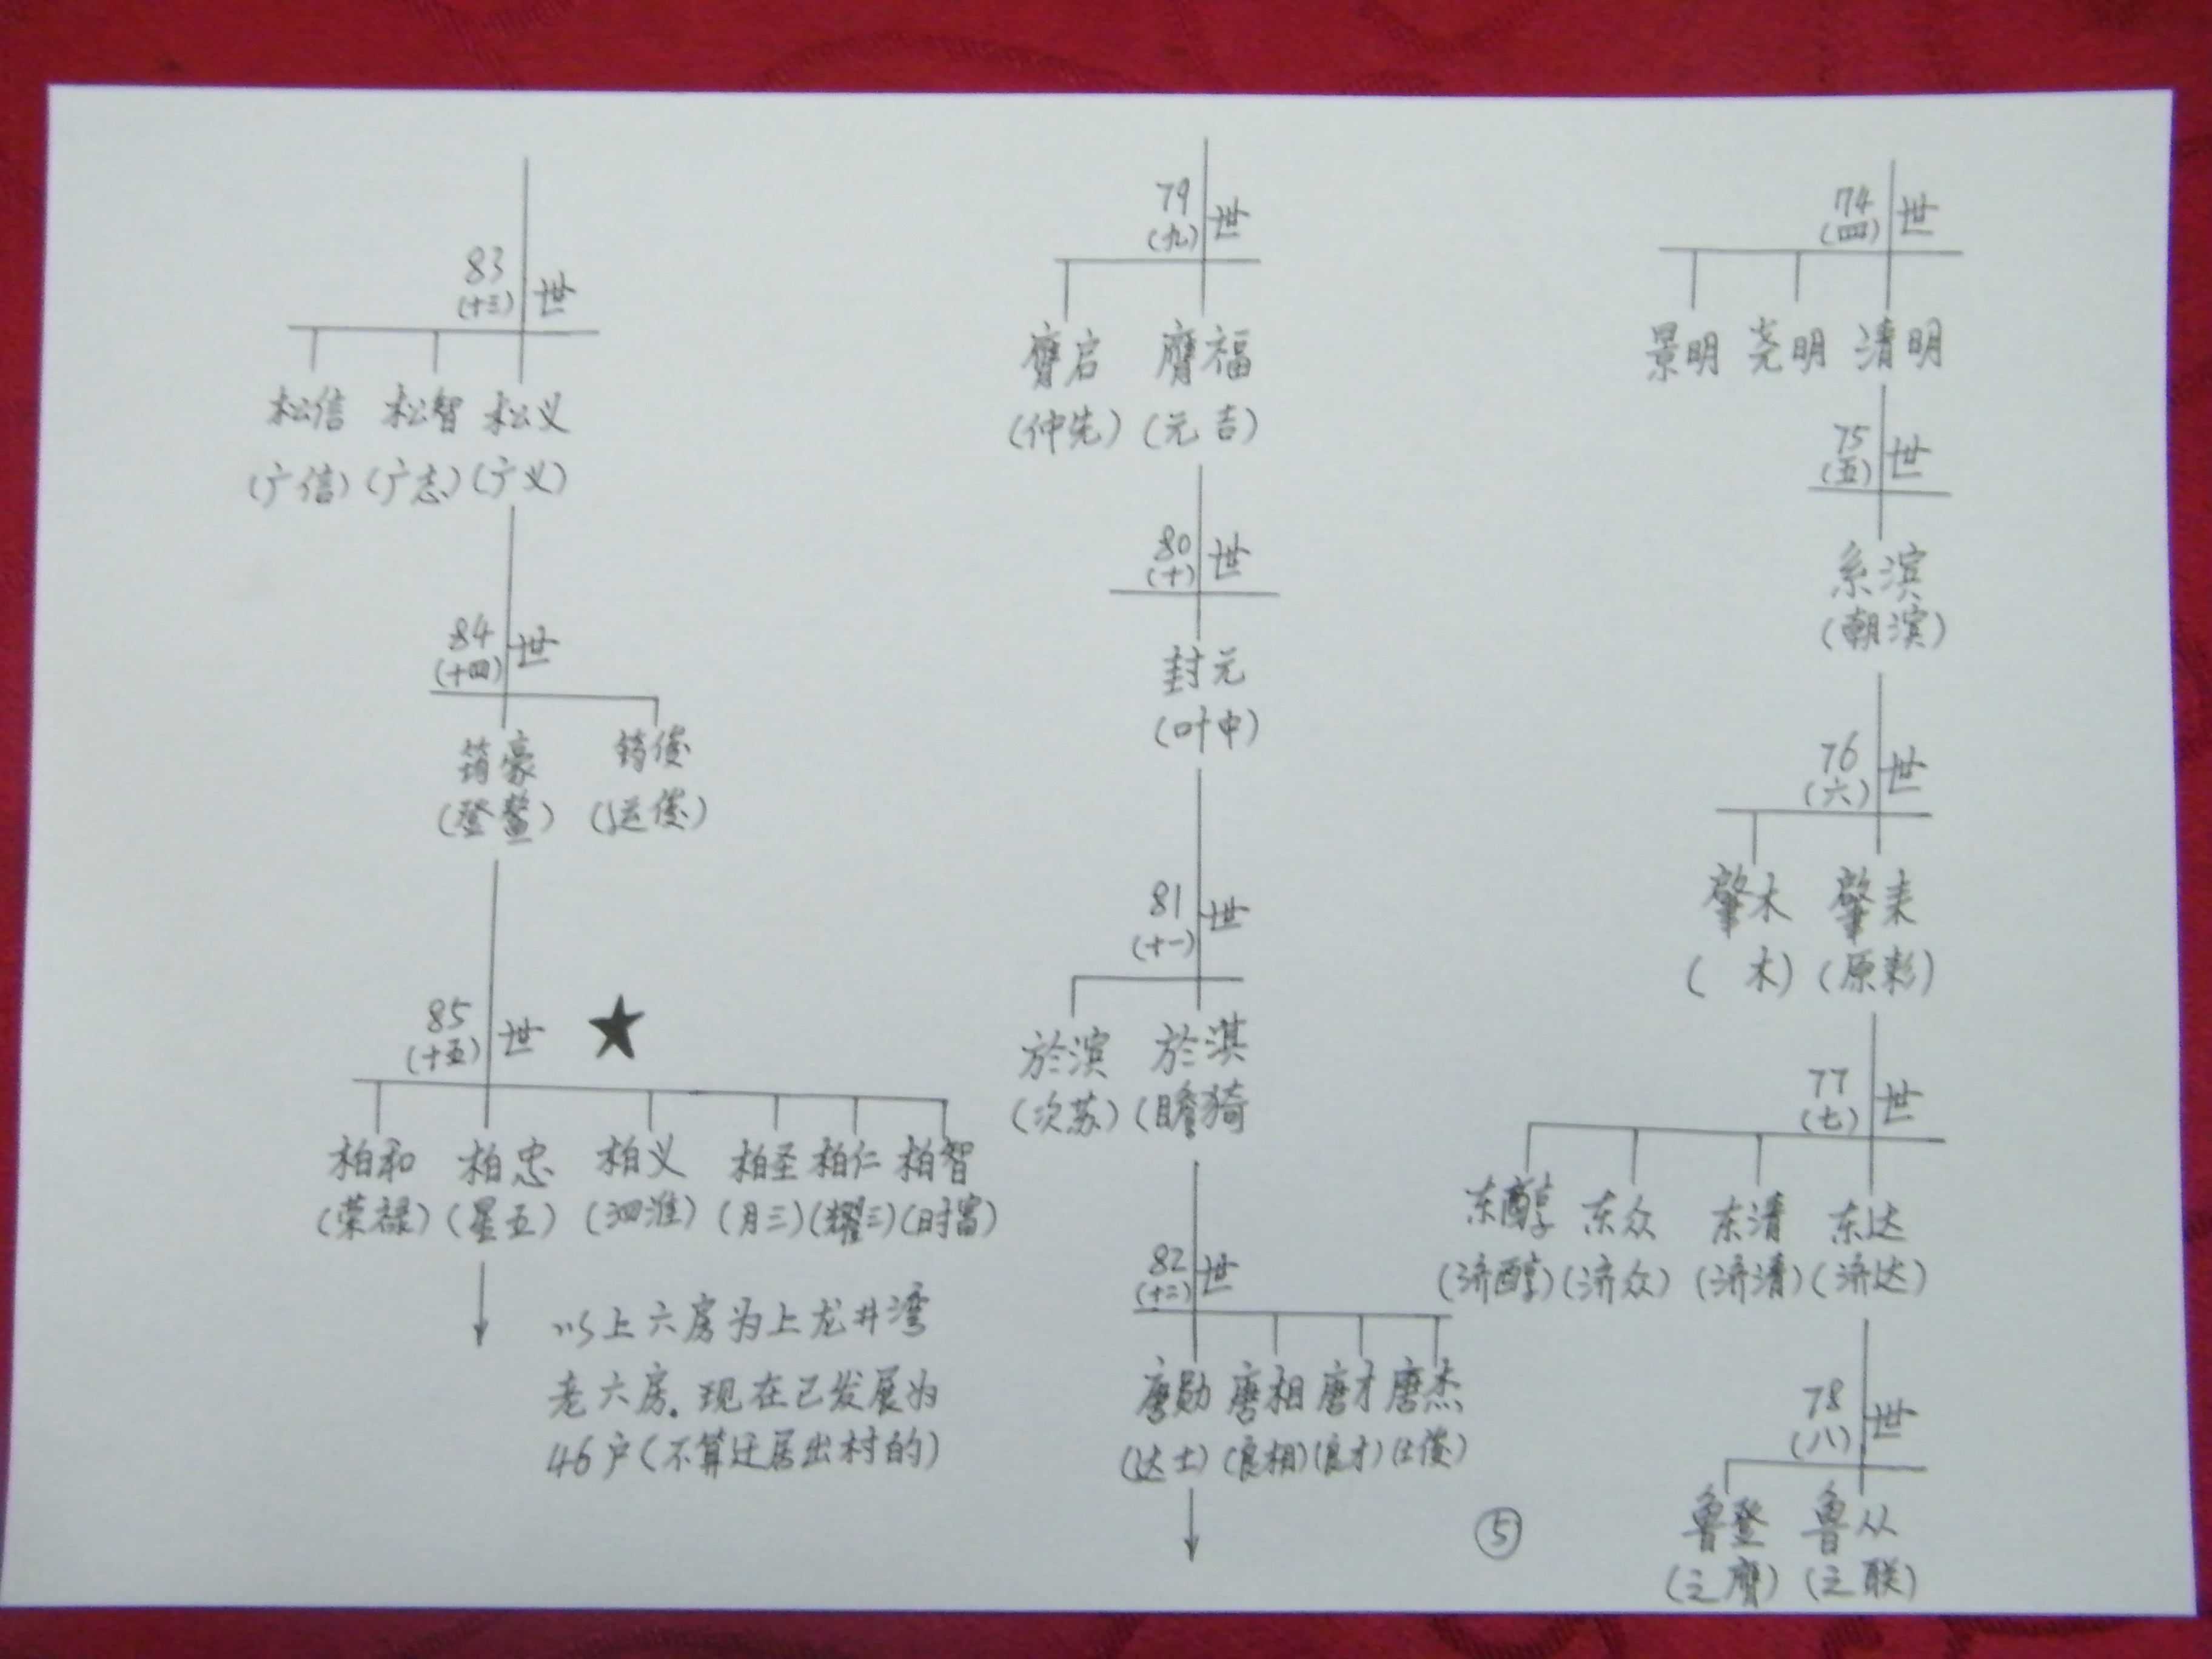 74
(四)
世
景明 尧明 清明
75
(五)
世
系滨
(朝滨)
76
(六)
世
肇木 肇耒
( 木) (原彩)
77
(七)
世
东醇 东众 东清 东达
(济醇) (济众) (济清) (济达)
78
(八)
世
鲁登 鲁从
(之膺) (之联)
79
(九)
世
膺启 膺福
(仲先) (元吉)
80
(十)
世
封元
(叶申)
81
(十一)
世
於滨 於淇
(次苏) (瞻猗
82
(十二)
世
唐勋 唐相 唐才 唐杰
(达士) (良相) (良才) (士俊)
83
(十三)
世
松信 松智 松义
(广信) (广志) (广义)
84
(十四)
世
筠豪 筠俊
(登鳌) (运俊)
85
(十五)
世
★
柏和 柏忠 柏义 柏圣 柏仁 柏智
(荣禄) (星五) (泗淮) (月三) (耀三) (时富)
以上六房为上龙井湾
老六房。现在已发展为
46户(不算迁居出村的)
⑤